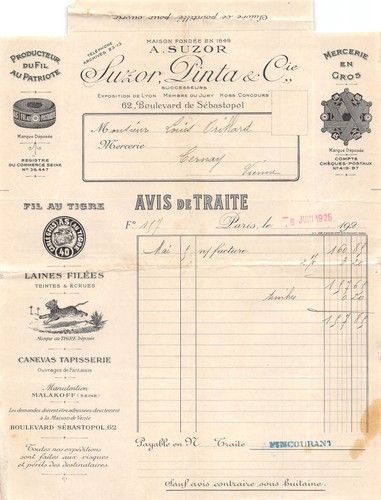 Ouvrir ce pointillé pour ouvrir
TÉLÉPHONE
ARCHIVES 23-13
MAISON FONDÉE EN 1849
A. SUZOR
Suzor, Pinta & Cie
SUCCESSEURS
EXPOSITION DE LYON MEMBRE DU JURY HORS CONCOURS
62, Boulevard de Sébastopol
PRODUCTEUR
DU FIL
AU PATRIOTE
Marque Déposée
REGISTRE
DU COMMERCE SEINE
No 36.447
MERCERIE
EN
GROS
Marque Déposée
COMPTE
CHÈQUES-POSTAUX
No 419-97
Monsieur Louis
Mercerie
Cernay
Vienne
FIL AU TIGRE
40
LAINES FILÉES
TEINTES & ÉCRUES
Marque au TIGRE Déposée
CANEVAS TAPISSERIE
Ouvrages de Fantaisie
Manutention
MALAKOFF (SEINE)
Les demandes doivent être adressées directement
à la Maison de Vente
BOULEVARD SÉBASTOPOL, 62
Toutes nos expéditions
sont faites aux risques
et périls des destinataires.
AVIS DE TRAITE
Fo 157
Paris, le 8 JUIN 1925 192
Mai 5 n/ facture 160 85
2% 3 20
157 65
Timbres 0 20
157 85
Payable au
Traite FINCOURANT
Sauf avis contraire sous huitaine.